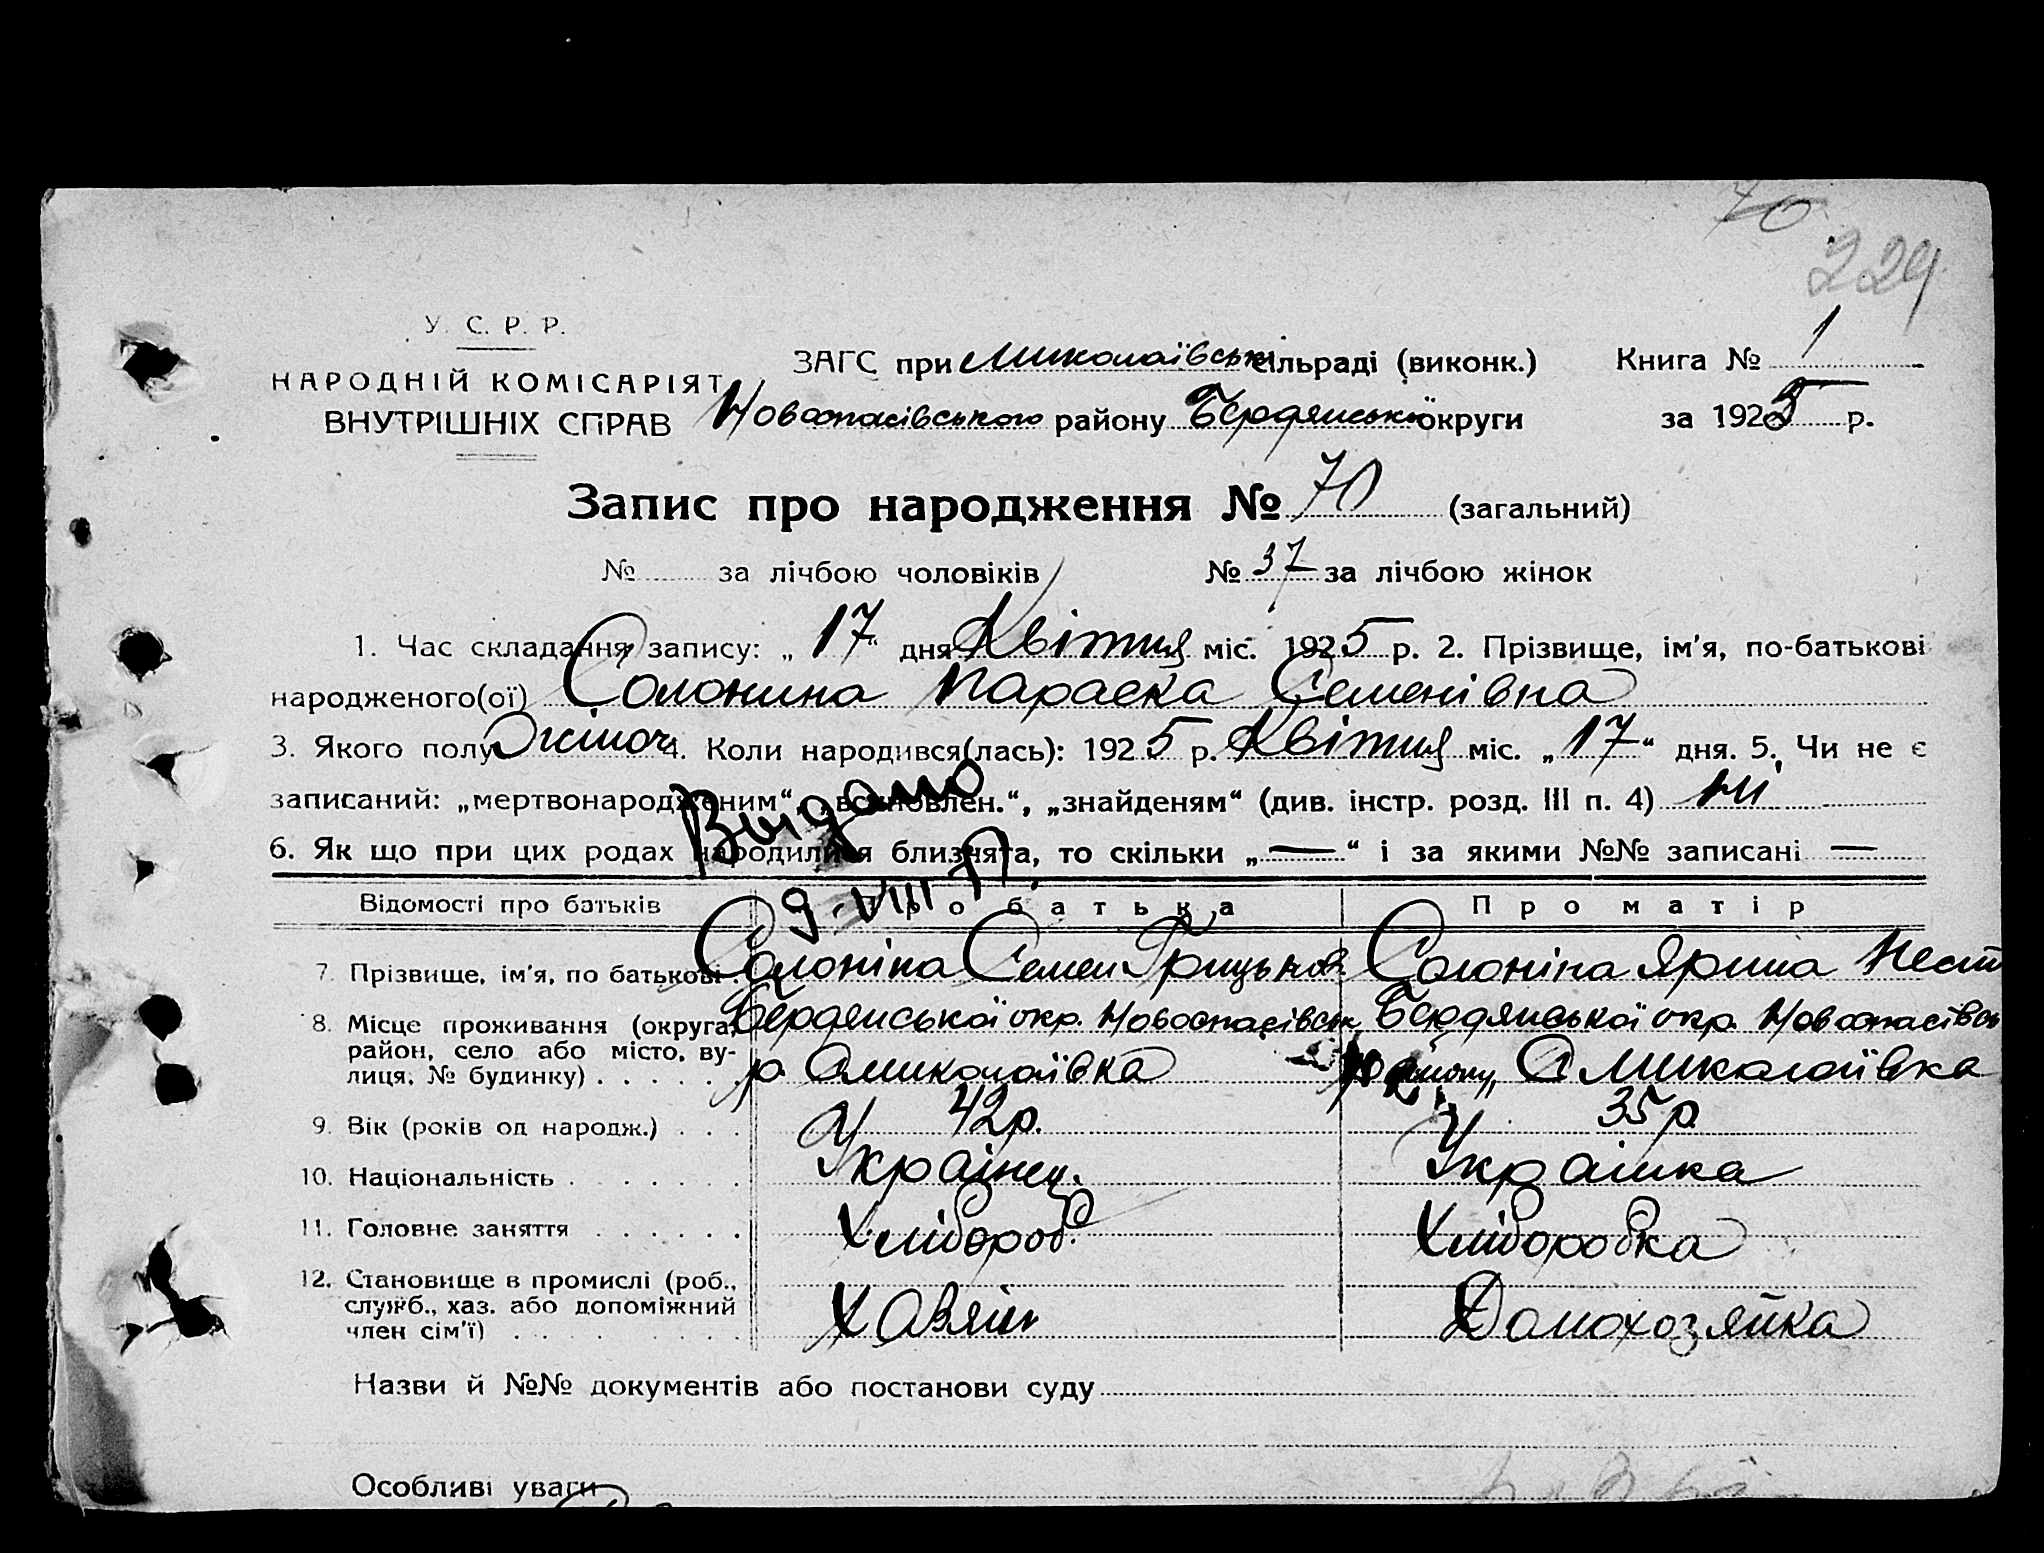 70
229
У. С. Р. Р.
НАРОДНІЙ КОМІСАРІЯТ
ВНУТРІШНІХ СПРАВ
ЗАГС при Миколаївській сільраді (виконк.) Книга № 1
Новоспасівського району Бердянської округи за 1925 р.
Запис про народження № 70 (загальний)
№ за лічбою чоловіків № 37 за лічбою жінок
1. Час складання запису: „17“ дня Квітня міс. 1925 р. 2. Прізвище, ім'я, по-батькові
народженого(ої) Солонина Параска Семенівна
3. Якого полу Жіноч 4. Коли народився(лась): 1925 р. Квітня міс. „17“ дня. 5. Чи не є
записаний: „мертвонародженим“, „возновлен.“, „знайденям“ (див. інстр. розд. III п. 4) ні
6. Як що при цих родах народилися близнята, то скільки „—“ і за якими №№ записані —
Выдано
9-VIII
Відомості про батьків Про батька Про матір
7. Прізвище, ім'я, по батькові . Солоніна Семен Грицьков. Солоніна Ярина Нест
8. Місце проживання (округа, Бердянської окр. Новоспасівськ. Бердянської окр. Новоспасівсь
район, село або місто, ву- р. с Миколаївка району, С Миколаївка
лиця, № будинку) . . . . . .
9. Вік (років од народж.) . . . 42р. 35р.
10. Національність . . . . . . . Українец. Українка
11. Головне заняття . . . . . . Хлібороб. Хліборобка
12. Становище в промислі (роб., Хазяїн Домохозяйка
служб., хаз. або допоміжний
член сім'ї) . . . . . . . . .
Назви й №№ документів або постанови суду
Особливі уваги